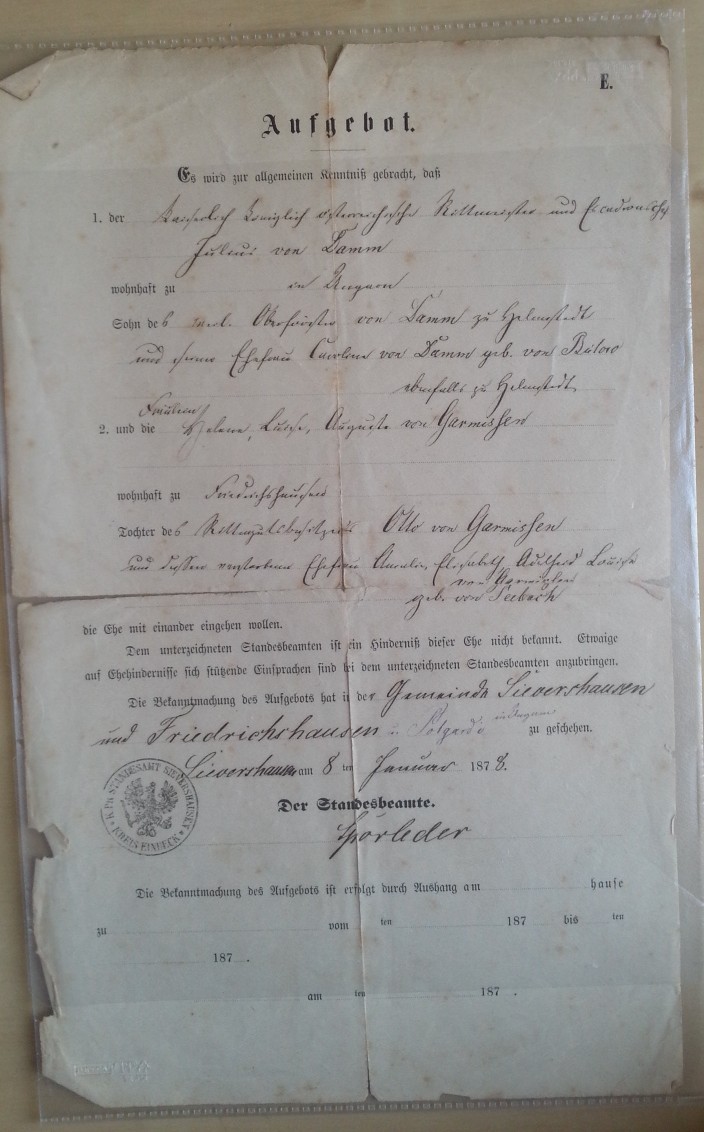 E.
Aufgebot.
Es wird zur allgemeinen Kenntniß gebracht, daß
1. der Kaiserlich Königlich österreichische Rittmeister und Escadronschef
Julius von Damm
wohnhaft zu in Ungarn
Sohn des Oberförster von Damm zu Helmstedt
und seiner Ehefrau Caroline von Damm geb. von Bülow
ebenfalls zu Helmstedt
Fräulein
2. und die Helene, Luise, Auguste von Garmissen
wohnhaft zu Friedrichshausen
Tochter des Rittergutsbesitzers Otto von Garmissen
und dessen verstorbene Ehefrau Amalie, Elisabeth, Adelheid Louise
von Garmissen
geb. von Seebach
die Ehe mit einander eingehen wollen.
Dem unterzeichneten Standesbeamten ist ein Hinderniß dieser Ehe nicht bekannt. Etwaige
auf Ehehindernisse sich stützende Einsprachen sind bei dem unterzeichneten Standesbeamten anzubringen.
Die Bekanntmachung des Aufgebots hat in der Gemeinde Sievershausen
und Friedrichshausen u. in Ungarn zu geschehen.
Sievershausen am 8 ten Januar 1878.
K. PR. STANDESAMT SIEVERSHAUSEN
KREIS EINBECK
Der Standesbeamte.
Spörleder
Die Bekanntmachung des Aufgebots ist erfolgt durch Aushang am hause
zu vom ten 187 bis ten
187 .
am ten 187 .